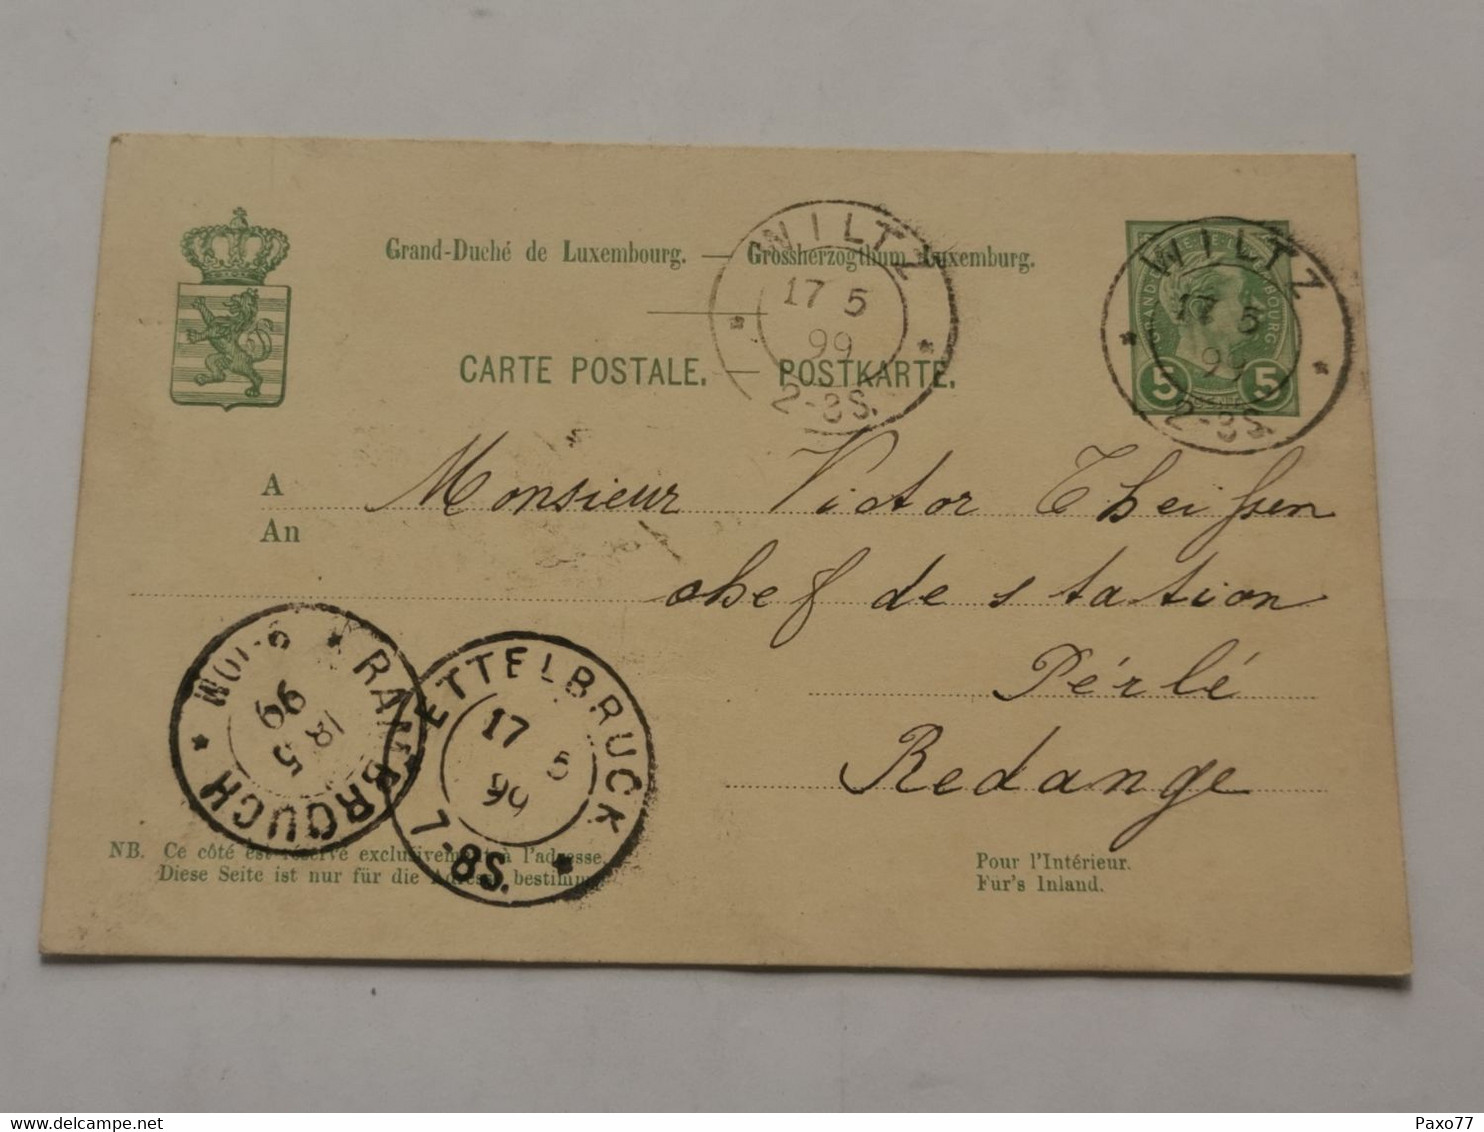 Grand-Duché de Luxembourg. — Grossherzogthum Luxemburg.
CARTE POSTALE. — POSTKARTE.
WILTZ
17 5
99
2-3S.
WILTZ
17 5
99
2-3S.
5 5
A Monsieur Victor Theissen
An
chef de station
Pérlé
Redange
RAMBROUCH
18 5
99
ETTELBRUCK
17 5
99
7-8S.
NB. Ce côté est réservé exclusivement à l'adresse.
Diese Seite ist nur für die Adresse bestimmt.
Pour l'Intérieur.
Fur's Inland.
delcampe.net
Paxo77